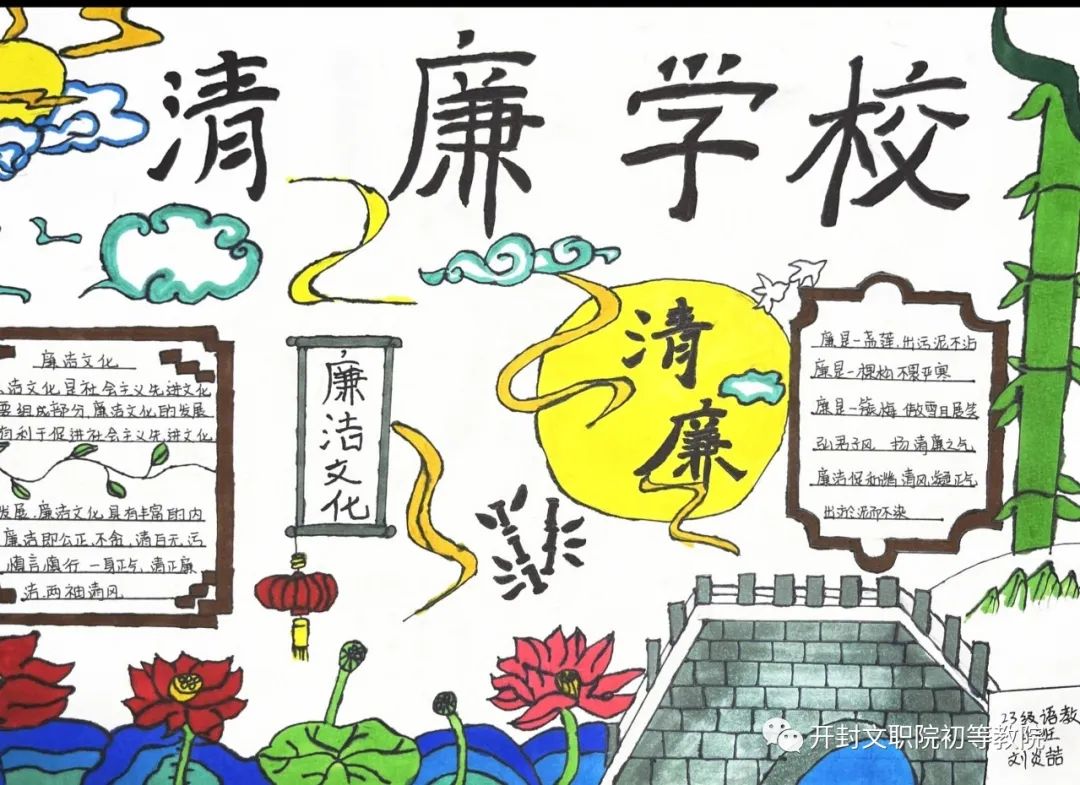 清廉学校
廉洁文化
洁文化是社会主义先进文化
要组成部分,廉洁文化的发展
有利于促进社会主义先进文化
发展.廉洁文化具有丰富的内
廉洁即公正,不贪,清白无污
慎言慎行.一身正气,清正廉
洁.两袖清风
廉洁文化
清廉
廉是一高莲,出污泥不沾
廉是一棵松 不畏严寒
廉是一簇梅 傲雪日展笑
弘君子风 扬清廉之气
廉洁促和谐,清风凝正气
出于泥而不染
23级语教
班
刘炎喆
开封文职院初等教院